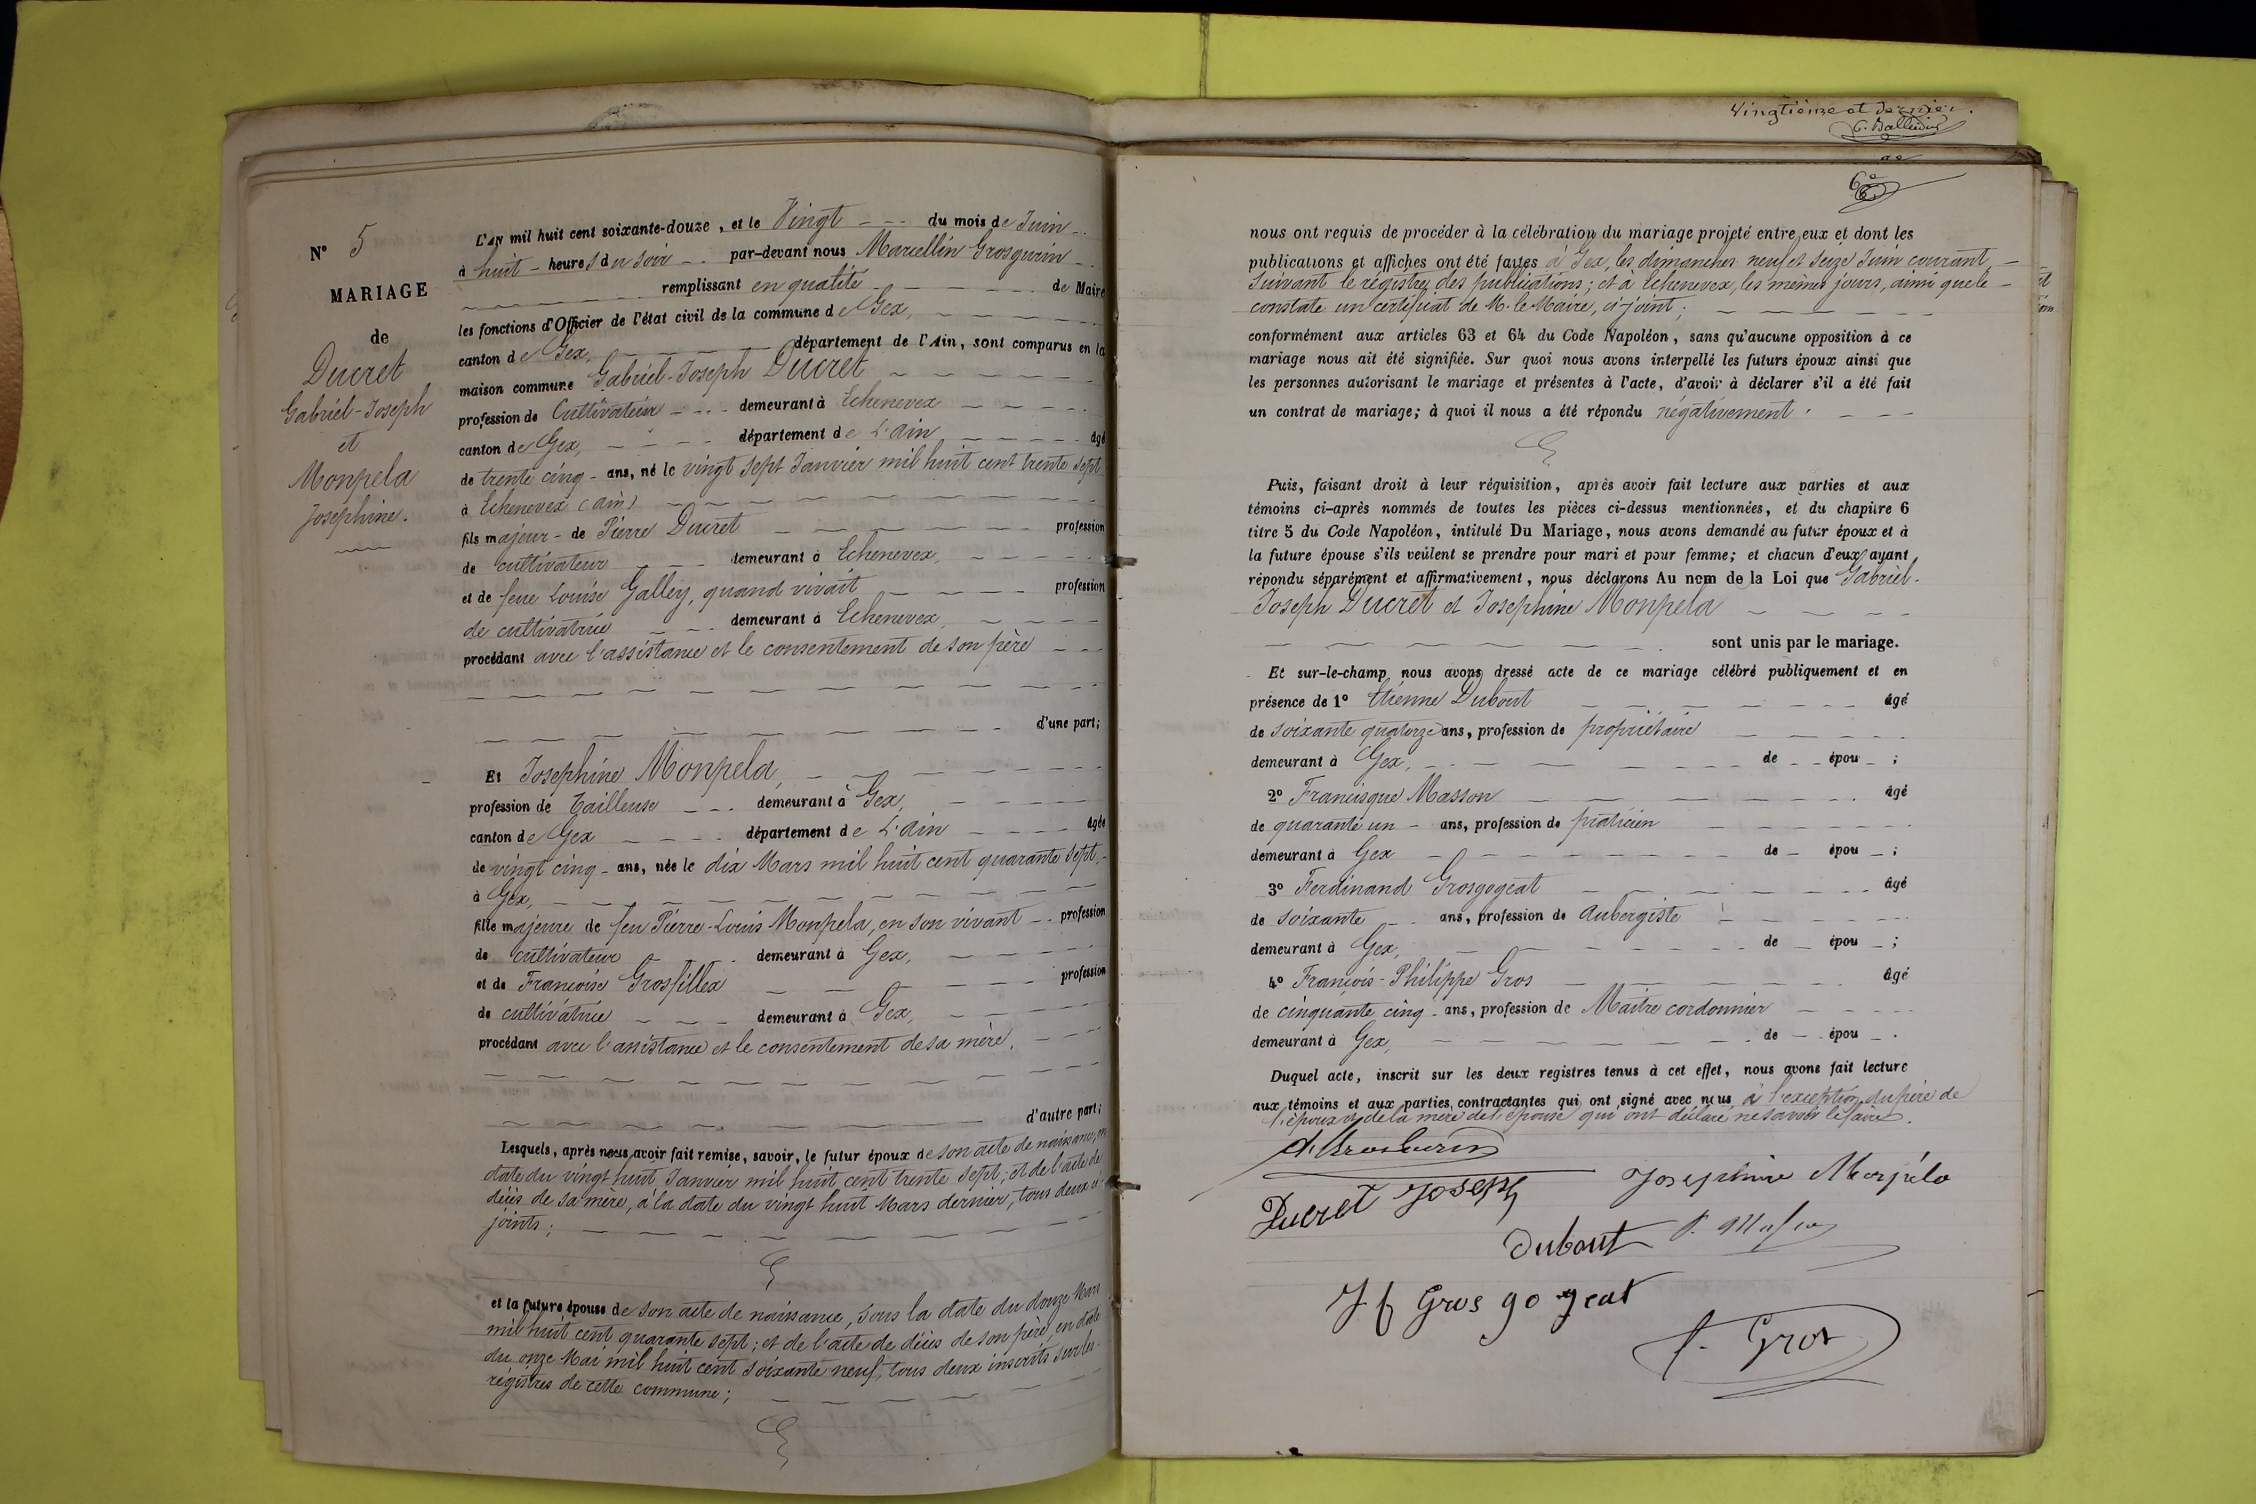 N° 5
MARIAGE
de
Ducret
Gabriel-Joseph
et
Monpela
Josephine.
L'AN mil huit cent soixante-douze, et le Vingt du mois de Juin
à huit heures du soir par-devant nous Marcellin Grosgurin
remplissant en qualité de Maire
les fonctions d'Officier de l'état civil de la commune de Gex,
canton de Gex, département de l'Ain, sont comparus en la
maison commune Gabriel-Joseph Ducret
profession de Cultivateur demeurant à Echenevex
canton de Gex, département de L'Ain âgé
de trente cinq ans, né le vingt sept Janvier mil huit cent trente sept
à Echenevex (Ain)
fils majeur de Pierre Ducret profession
de cultivateur demeurant à Echenevex,
et de feue Louise Galley, quand vivait profession
de cultivatrice demeurant à Echenevex,
procédant avec l'assistance et le consentement de son père
d'une part;
Et Josephine Monpela,
profession de Tailleuse demeurant à Gex,
canton de Gex département de L'Ain âgée
de vingt cinq ans, née le dix Mars mil huit cent quarante sept
à Gex,
fille majeure de feu Pierre-Louis Monpela, en son vivant profession
de cultivateur demeurant à Gex,
et de Françoise Grosfillex profession
de cultivatrice demeurant à Gex,
procédant avec l'assistance et le consentement de sa mère.
d'autre part;
Lesquels, après nous avoir fait remise, savoir, le futur époux de son acte de naissance, en
date du vingt huit Janvier mil huit cent trente sept; et de l'acte de
décès de sa mère, à la date du vingt huit Mars dernier, tous deux ci-
joints;
et la future épouse de son acte de naissance, sous la date du douze Mars
mil huit cent quarante sept; et de l'acte de décès de son père, en date
du onze Mai mil huit cent soixante neuf, tous deux inscrits sur les
registres de cette commune;
Vingtième et dernier.
6e
nous ont requis de procéder à la célébration du mariage projeté entre eux et dont les
publications et affiches ont été faites à Gex, les dimanches neuf et seize Juin courant
suivant le registre des publications; et à Echenevex, les mêmes jours, ainsi que le
constate un certificat de M. le Maire, ci-joint;
conformément aux articles 63 et 64 du Code Napoléon, sans qu'aucune opposition à ce
mariage nous ait été signifiée. Sur quoi nous avons interpellé les futurs époux ainsi que
les personnes autorisant le mariage et présentes à l'acte, d'avoir à déclarer s'il a été fait
un contrat de mariage; à quoi il nous a été répondu négativement.
Puis, faisant droit à leur réquisition, après avoir fait lecture aux parties et aux
témoins ci-après nommés de toutes les pièces ci-dessus mentionnées, et du chapitre 6
titre 5 du Code Napoléon, intitulé Du Mariage, nous avons demandé au futur époux et à
la future épouse s'ils veulent se prendre pour mari et pour femme; et chacun d'eux ayant
répondu séparément et affirmativement, nous déclarons Au nom de la Loi que Gabriel-
Joseph Ducret et Josephine Monpela
sont unis par le mariage.
Et sur-le-champ nous avons dressé acte de ce mariage célébré publiquement et en
présence de 1° Etienne Dubout âgé
de soixante quatorze ans, profession de propriétaire
demeurant à Gex, de épou ;
2° Francisque Masson âgé
de quarante un ans, profession de praticien
demeurant à Gex de épou ;
3° Ferdinand Grosgogeat âgé
de soixante ans, profession de aubergiste
demeurant à Gex, de épou ;
4° François-Philippe Gros âgé
de cinquante cinq ans, profession de Maître cordonnier
demeurant à Gex, de épou .
Duquel acte, inscrit sur les deux registres tenus à cet effet, nous avons fait lecture
aux témoins et aux parties contractantes qui ont signé avec nous à l'exception du père de
l'époux et de la mère de l'épouse qui ont déclaré ne savoir le faire.
Ducret Joseph
Josephine Monpela
Dubout
J f Gros go geat
f. Gros